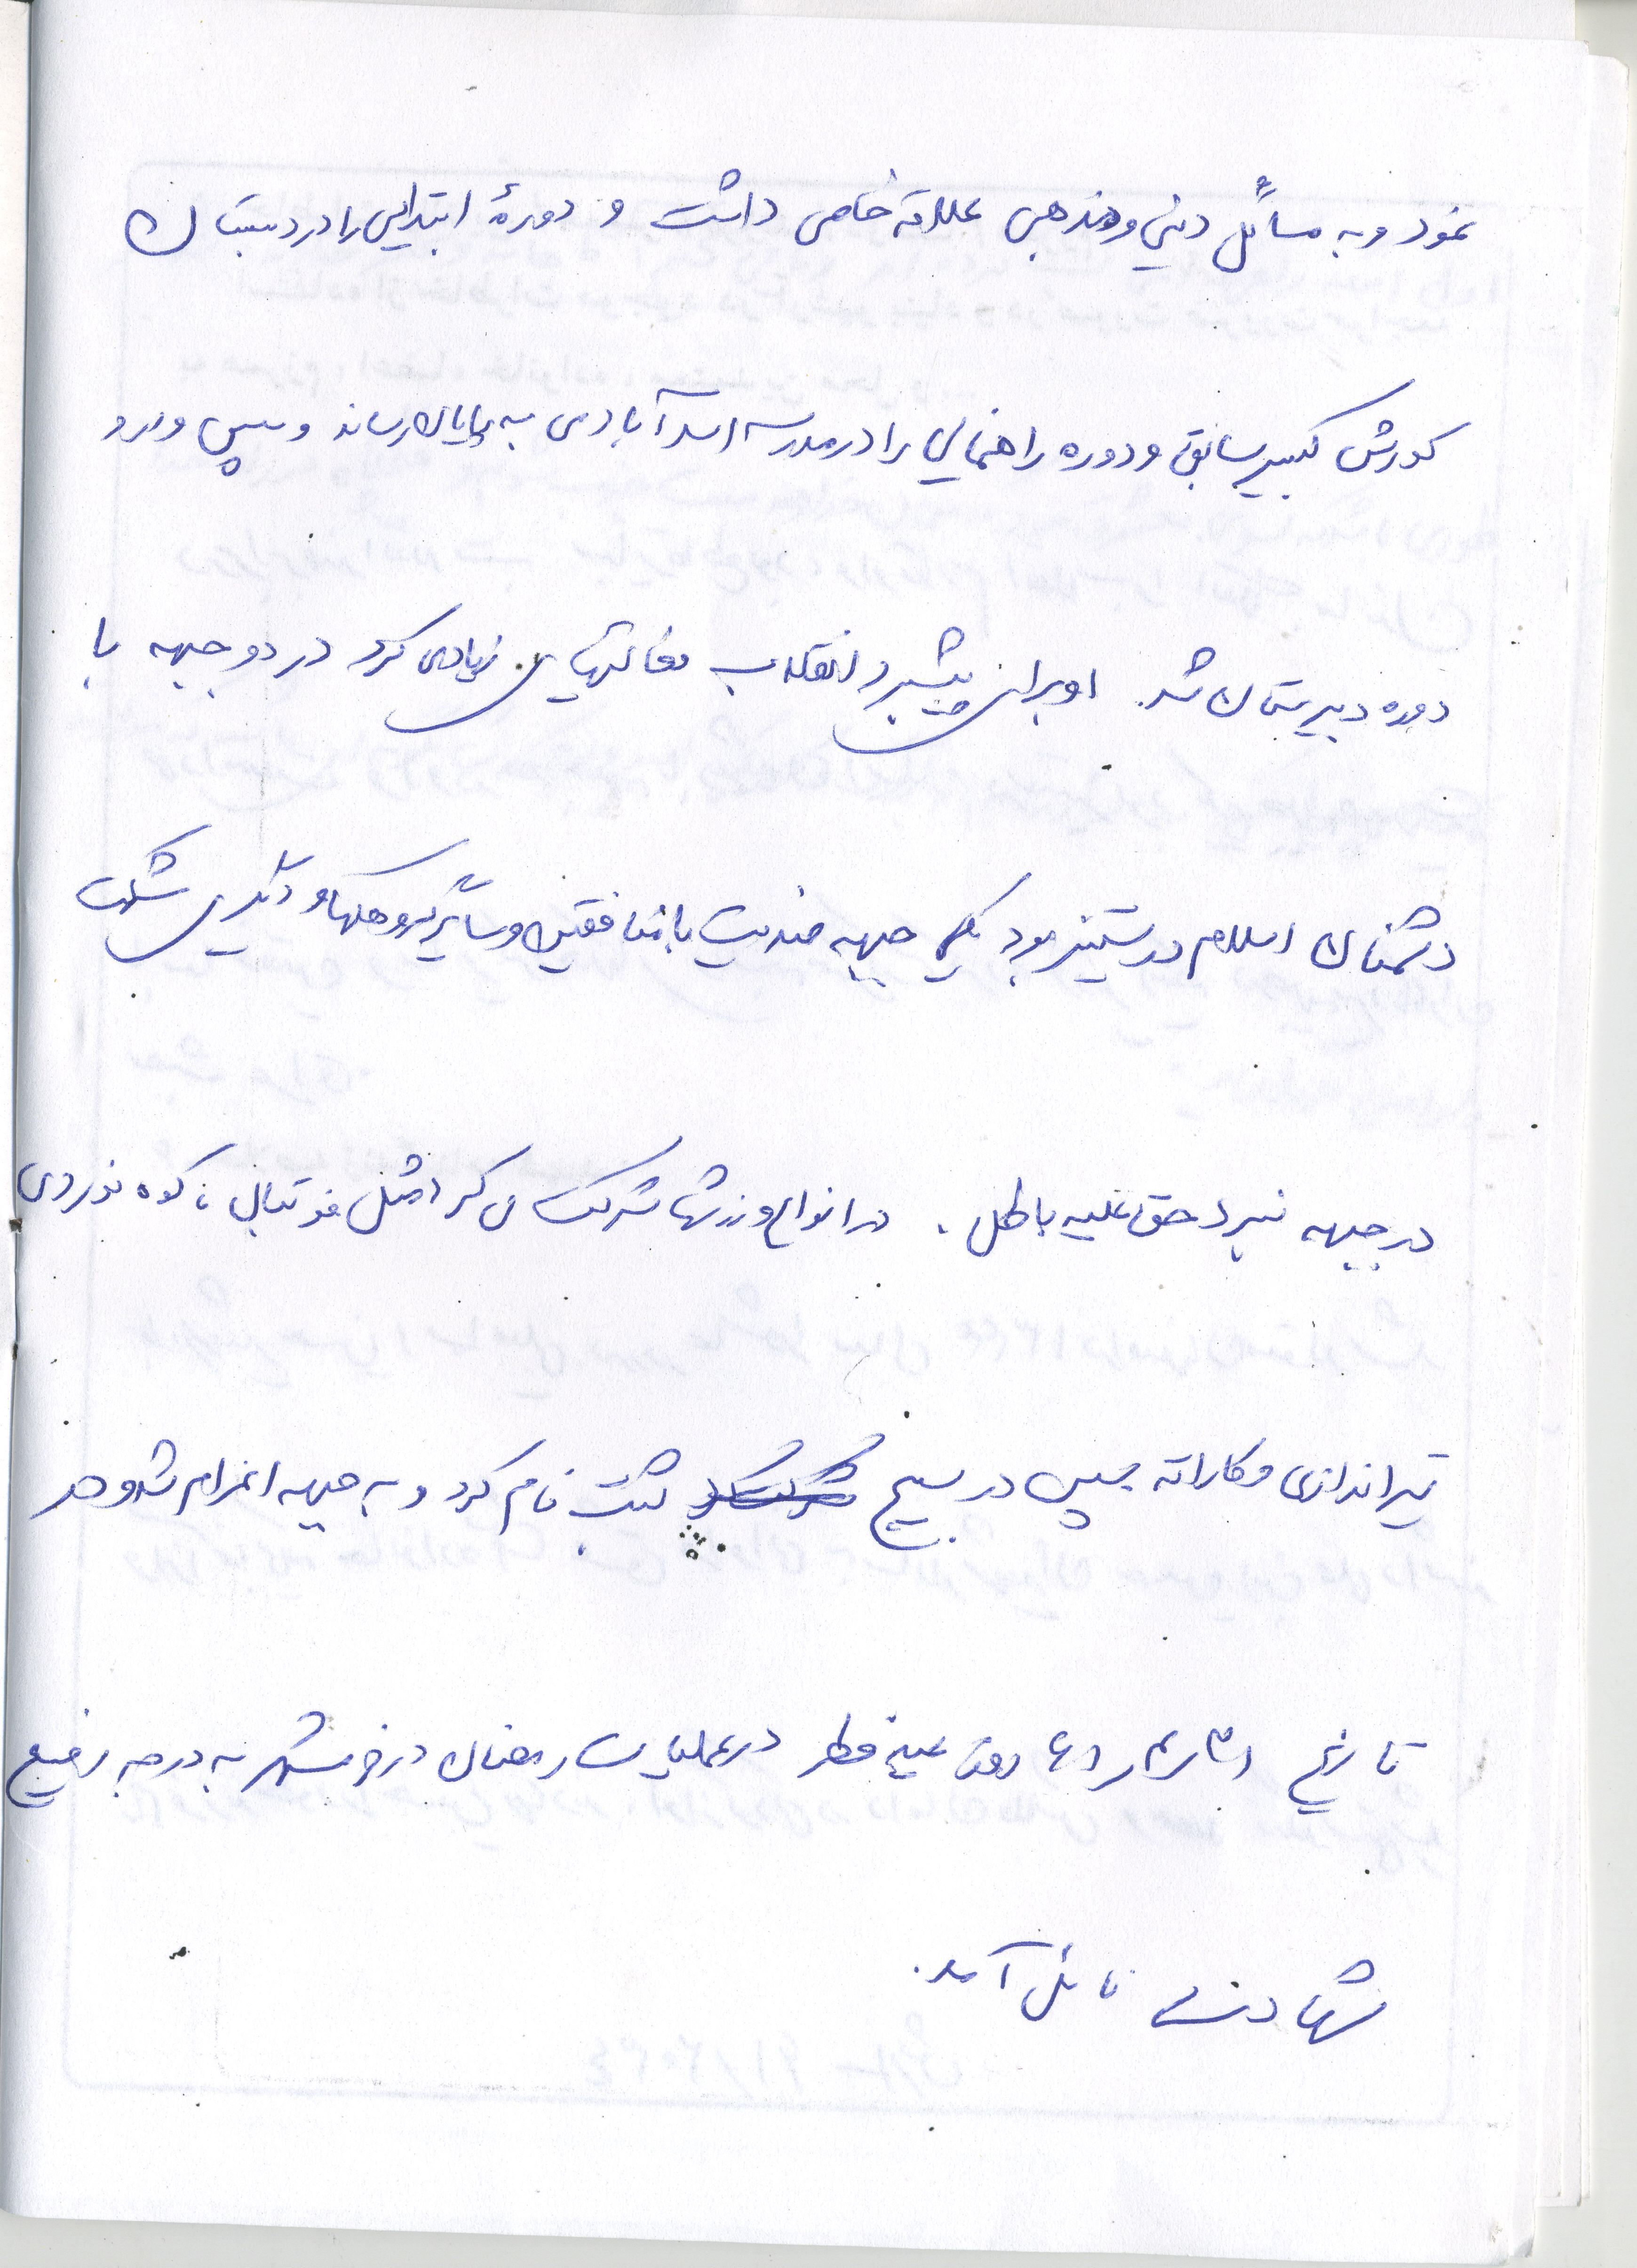 نمود و به مسائل دینی و مذهبی علاقه خاصی داشت و دورهٔ ابتدایی را در دبستان
کورش کبیر سابق و دوره راهنمایی را در مدرسه اسدآبادی به پایان رساند و سپس وارد
دوره دبیرستان شد. او برای پیشبرد انقلاب فعالیتهای زیادی کرد در دو جبهه با
دشمنان اسلام در ستیز بود یکی جبهه ضدیت با منافقین و سایر گروهکها و دیگری شرکت
در جبهه نبرد حق علیه باطل. در انواع ورزشها شرکت می کرد مثل فوتبال، کوه نوردی
تیراندازی و کاراته سپس در بسیج ثبت نام کرد و به جبهه اعزام شد و در
تاریخ روز عید فطر در عملیات رمضان در خرمشهر به درجه رفیع
شهادت نائل آمد.